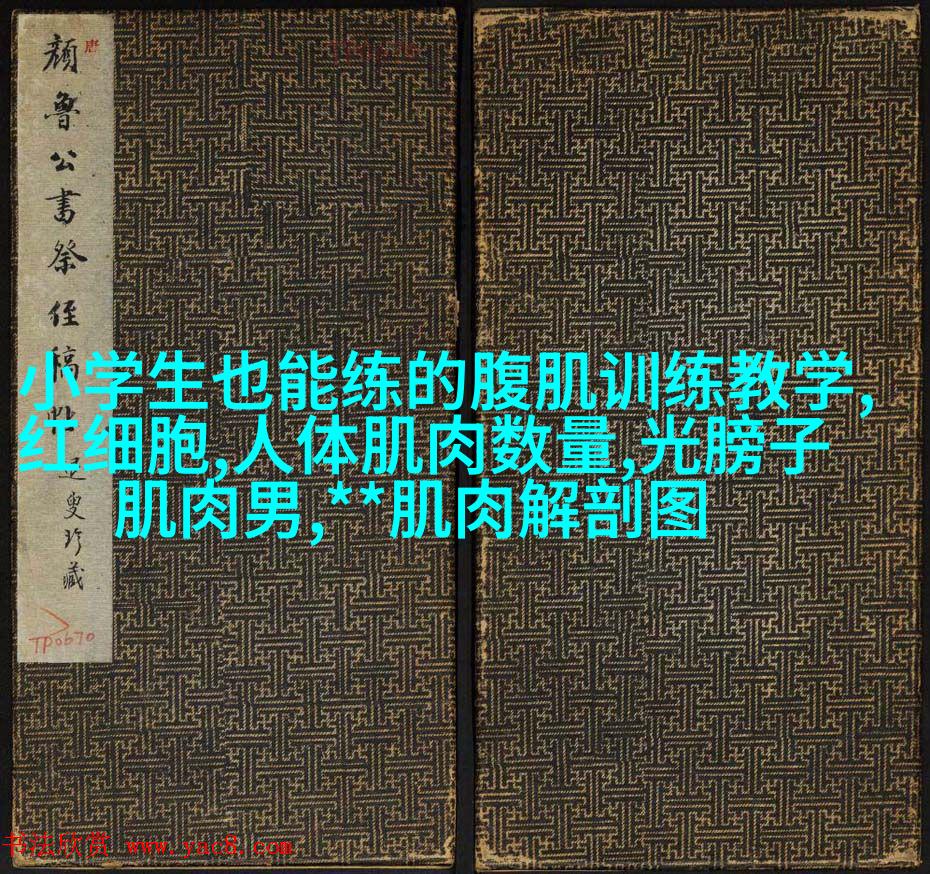 唐
顔魯公書祭侄稿
叟珍藏
TP0670
小学生也能练的腹肌训练教学,
红细胞,人体肌肉数量,光膀子
肌肉男,**肌肉解剖图
书法欣赏 www.yac8.com